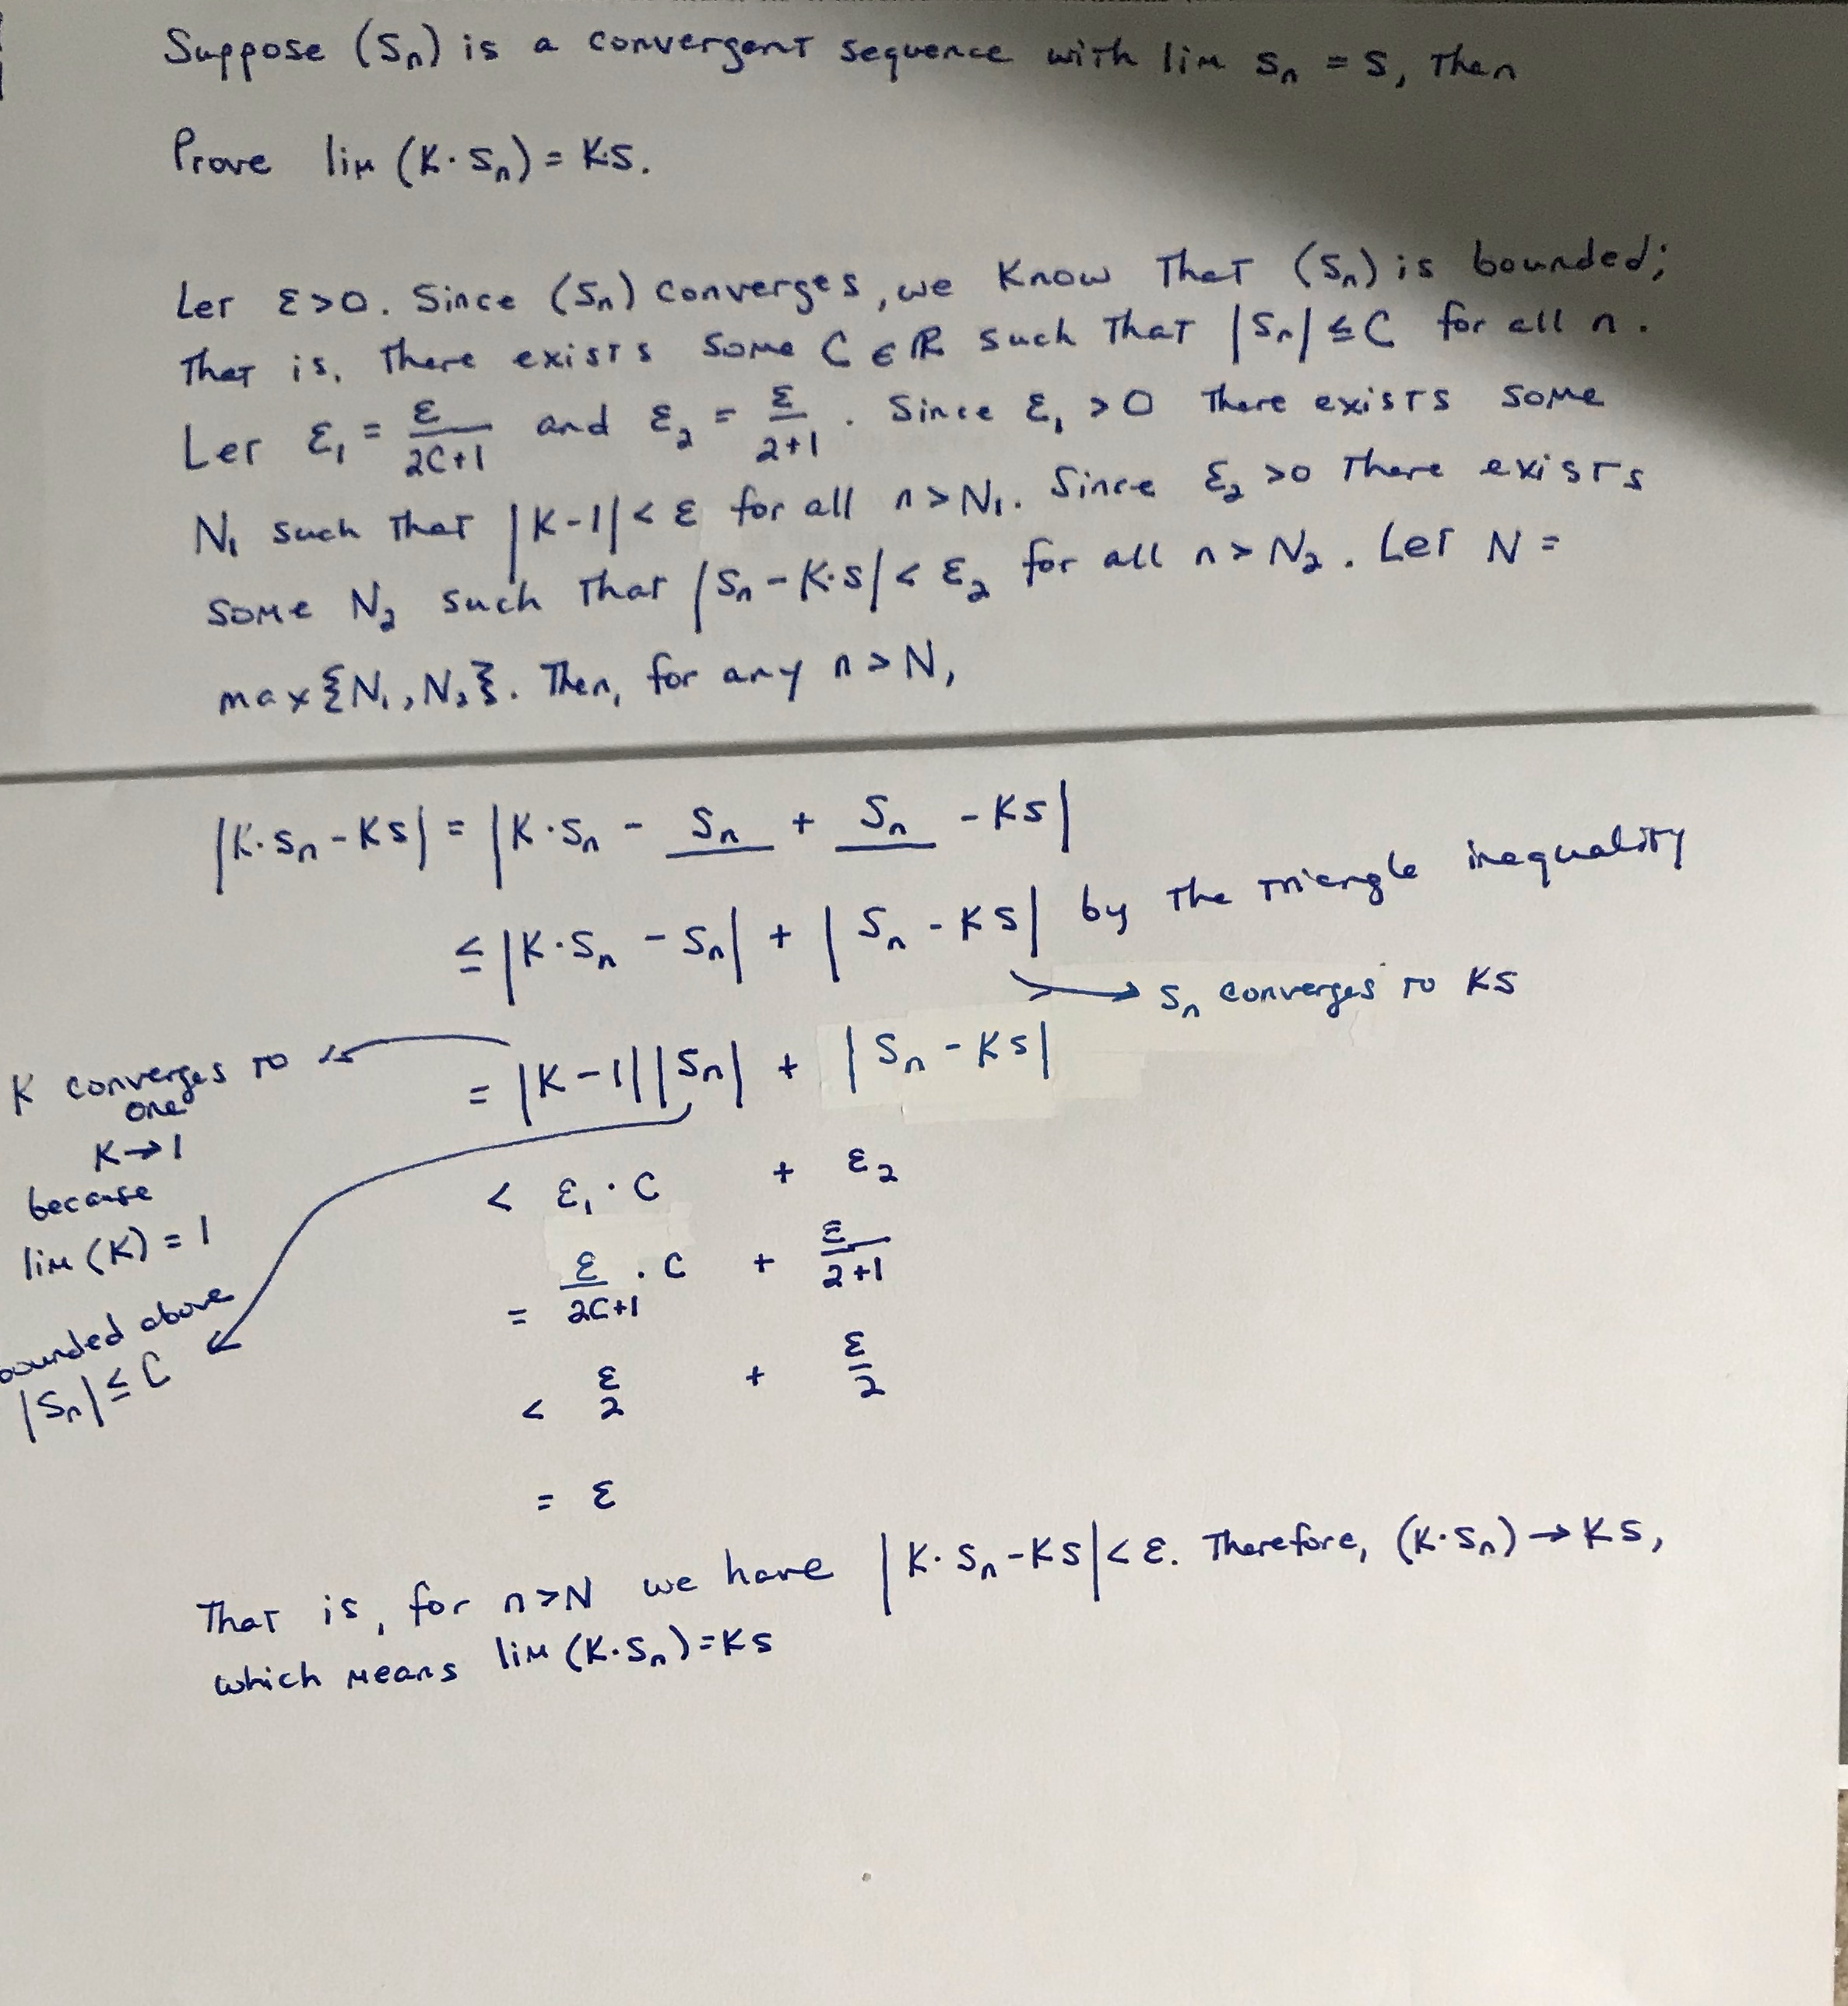 Suppose (Sₙ) is a convergent sequence with lim Sₙ = S, Then
Prove lim (K·Sₙ) = K·S.
Let ε>0. Since (Sₙ) converges, we know That (Sₙ) is bounded;
That is, There exists some C ∈ ℝ such That |Sₙ| ≤ C for all n.
Let ε₁ = ε/(2C+1) and ε₂ = ε/(2+1). Since ε₁ > 0 There exists some
N₁ such That |K-1| < ε for all n > N₁. Since ε₂ >0 There exists
some N₂ such That |Sₙ - K·S| < ε₂ for all n > N₂. Let N =
max{N₁, N₂}. Then, for any n > N,
|K·Sₙ - KS| = |K·Sₙ - Sₙ + Sₙ - KS|
≤ |K·Sₙ - Sₙ| + |Sₙ - KS| by The Triangle inequality
Sₙ converges to KS
= |K-1||Sₙ| + |Sₙ - KS|
K converges to
one
K→1
because
lim (K) = 1
bounded above
|Sₙ| ≤ C
< ε₁·C + ε₂
= ε/(2C+1) · C + ε/(2+1)
< ε/2 + ε/2
= ε
That is, for n>N we have |K·Sₙ - KS| < ε. Therefore, (K·Sₙ) → KS,
which means lim (K·Sₙ) = KS